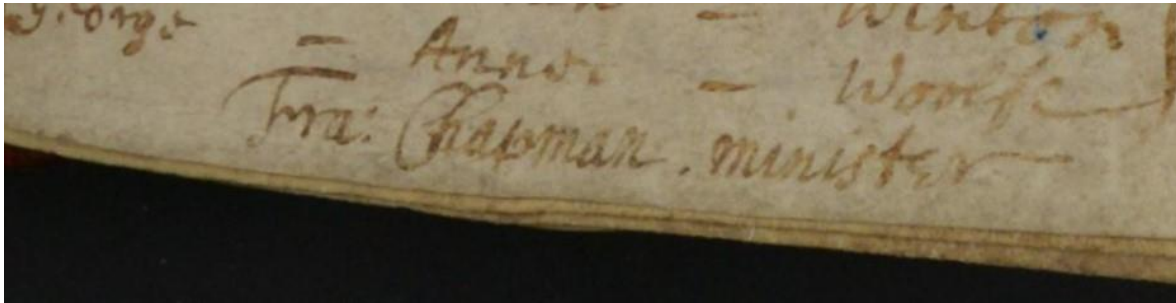 George — Winton
— Anne — Woolfe
Fra: Chapman. minister